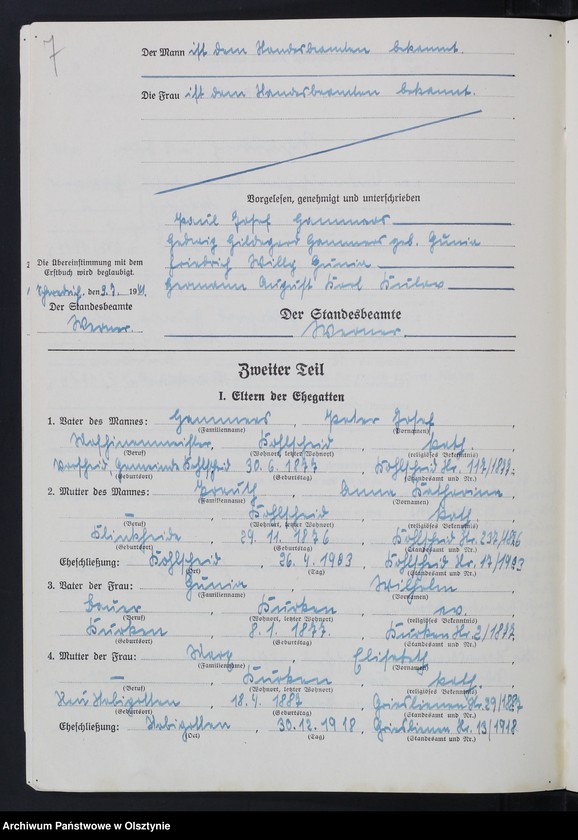 7
Der Mann ist dem Standesbeamten bekannt.
Die Frau ist dem Standesbeamten bekannt.
Vorgelesen, genehmigt und unterschrieben
Paul Josef Hammers
Hedwig Hildegard Hammers geb. Gunia
Friedrich Willy Gunia
Hermann August Karl
Die Übereinstimmung mit dem
Erstbuch wird beglaubigt.
den 3.7. 1941.
Der Standesbeamte
Werner.
Der Standesbeamte
Werner.
Zweiter Teil
I. Eltern der Ehegatten
1. Vater des Mannes: Hammers, Peter Josef
(Familienname) (Vornamen)
Maschinenmeister, Kohlscheid, kath.
(Beruf) (Wohnort, letzter Wohnort) (religiöses Bekenntnis)
Gemeinde Kohlscheid 30.6.1877, Kohlscheid Nr. 117/1877.
(Geburtsort) (Geburtstag) (Standesamt und Nr.)
2. Mutter des Mannes: Anna Katharina
(Familienname) (Vornamen)
— Kohlscheid, kath.
(Beruf) (Wohnort, letzter Wohnort) (religiöses Bekenntnis)
Klinkheide, 29.11.1876, Kohlscheid Nr. 237/1876
(Geburtsort) (Geburtstag) (Standesamt und Nr.)
Eheschließung: Kohlscheid, 26.4.1903, Kohlscheid Nr. 17/1903
(Ort) (Tag) (Standesamt und Nr.)
3. Vater der Frau: Gunia, Wilhelm
(Familienname) (Vornamen)
Bauer, Kurken, ev.
(Beruf) (Wohnort, letzter Wohnort) (religiöses Bekenntnis)
Kurken, 8.1.1877, Kurken Nr. 2/1877
(Geburtsort) (Geburtstag) (Standesamt und Nr.)
4. Mutter der Frau: Elisabeth
(Familienname) (Vornamen)
— Kurken, kath.
(Beruf) (Wohnort, letzter Wohnort) (religiöses Bekenntnis)
18.4.1887, Grieslienen Nr. 29/1887
(Geburtsort) (Geburtstag) (Standesamt und Nr.)
Eheschließung: 30.12.1918, Grieslienen Nr. 13/1918.
(Ort) (Tag) (Standesamt und Nr.)
Archiwum Państwowe w Olsztynie